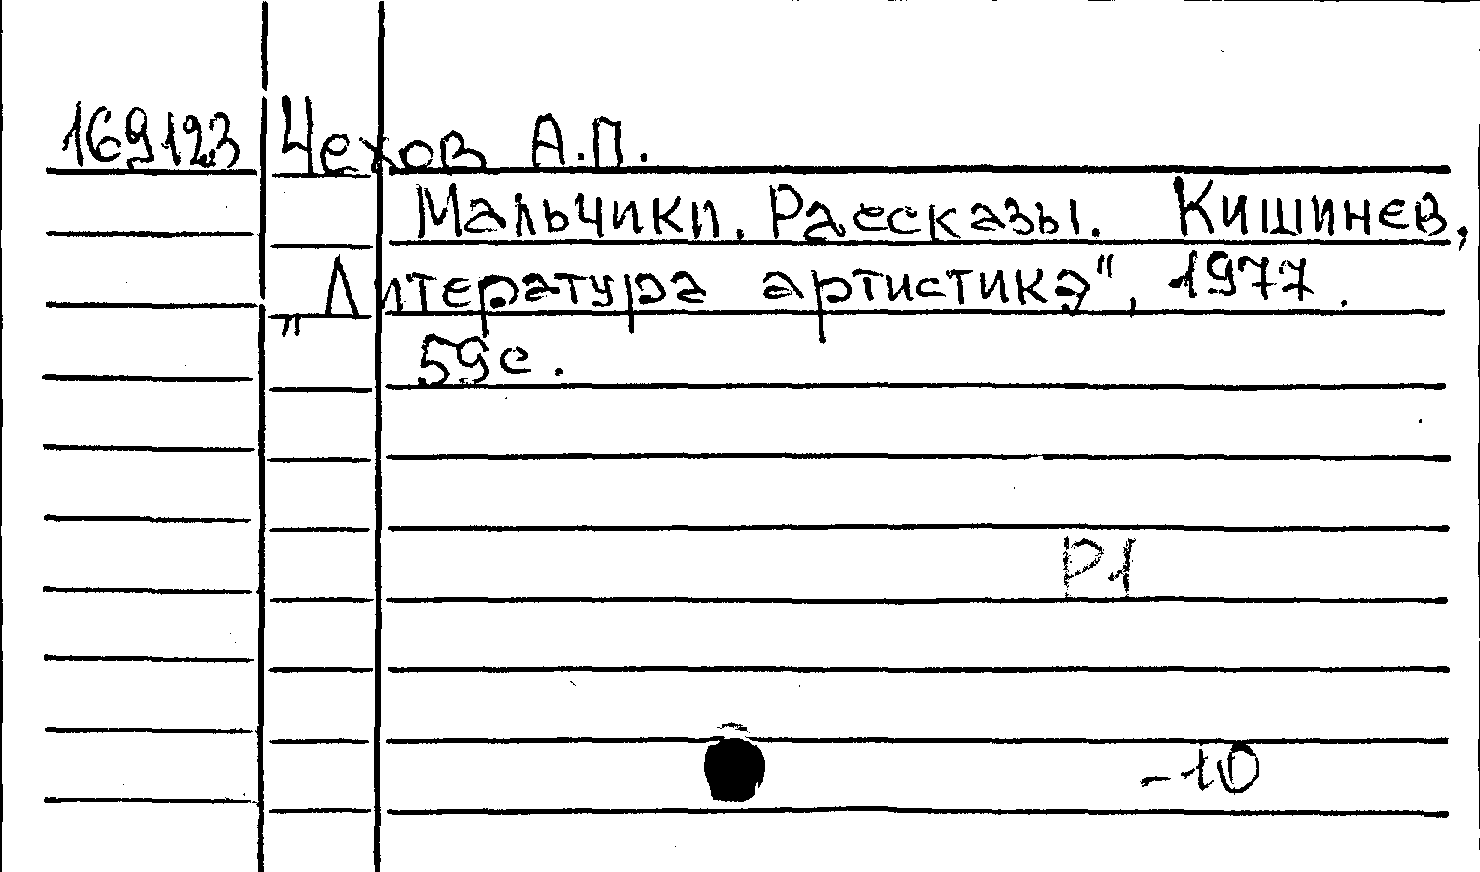 169123 Чехов А.П.
Мальчики. Рассказы. Кишинев,
„Литература артистикэ", 1977.
59с.
Р1
-10